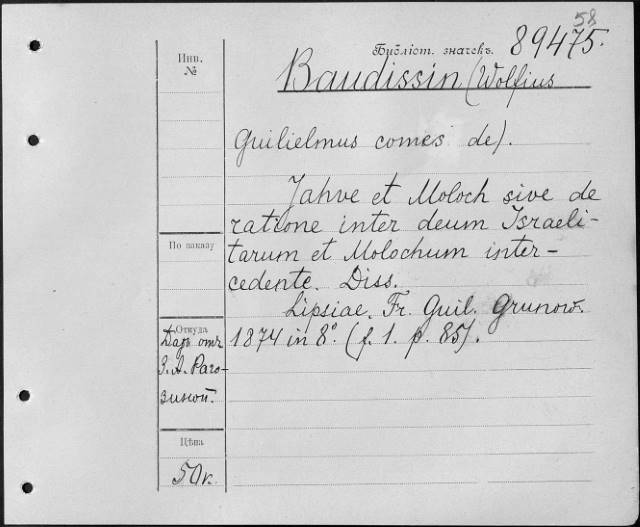 58
Инв.
№
Библіот. значекъ. 89475.
Baudissin (Wolfius
Guilielmus comes de).
Jahve et Moloch sive de
ratione inter deum Israeli-
tarum et Molochum inter-
cedente. Diss.
Lipsiae, Fr. Guil. Grunow.
1874 in 8°. (f. 1. p. 85).
По заказу
Откуда
Даръ отъ
З. А. Раго-
зиной.
Цѣна
50 к.